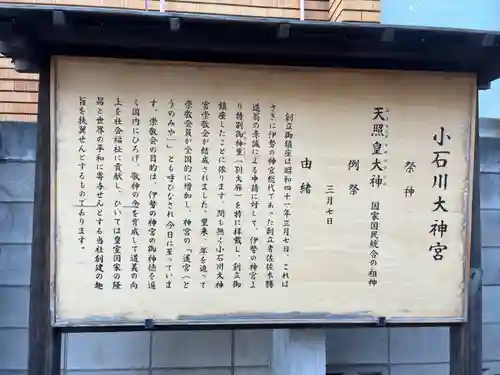 小石川大神宮
祭神
あまてらすすめおおかみ
天照皇大神　国家国民統合の祖神
例祭
三月七日
由緒
創立御鎮座は昭和四十一年三月七日、これは
さきに伊勢の神宮総代であった創立者佐佐木勝
造翁の赤誠による申請に対して、伊勢の神宮よ
り特別御神璽（別大麻）を特に拝戴し、創立御
鎮座したことに依ります。間も無く小石川大神
宮崇敬会が結成されました。爾来、年を追って
崇敬会員が全国的に増加し、神宮の「遙宮」（と
うのみや）とも呼びなされ今日に至っていま
す。崇敬会の目的は、伊勢の神宮の御神徳を遍
く国内にひろげ、敬神の念を育成して道義の向
上を社会福祉に貢献し、ひいては皇室国家の隆
昌と世界の平和に寄与せんとする当社創建の趣
旨を扶翼せんとするものであります。